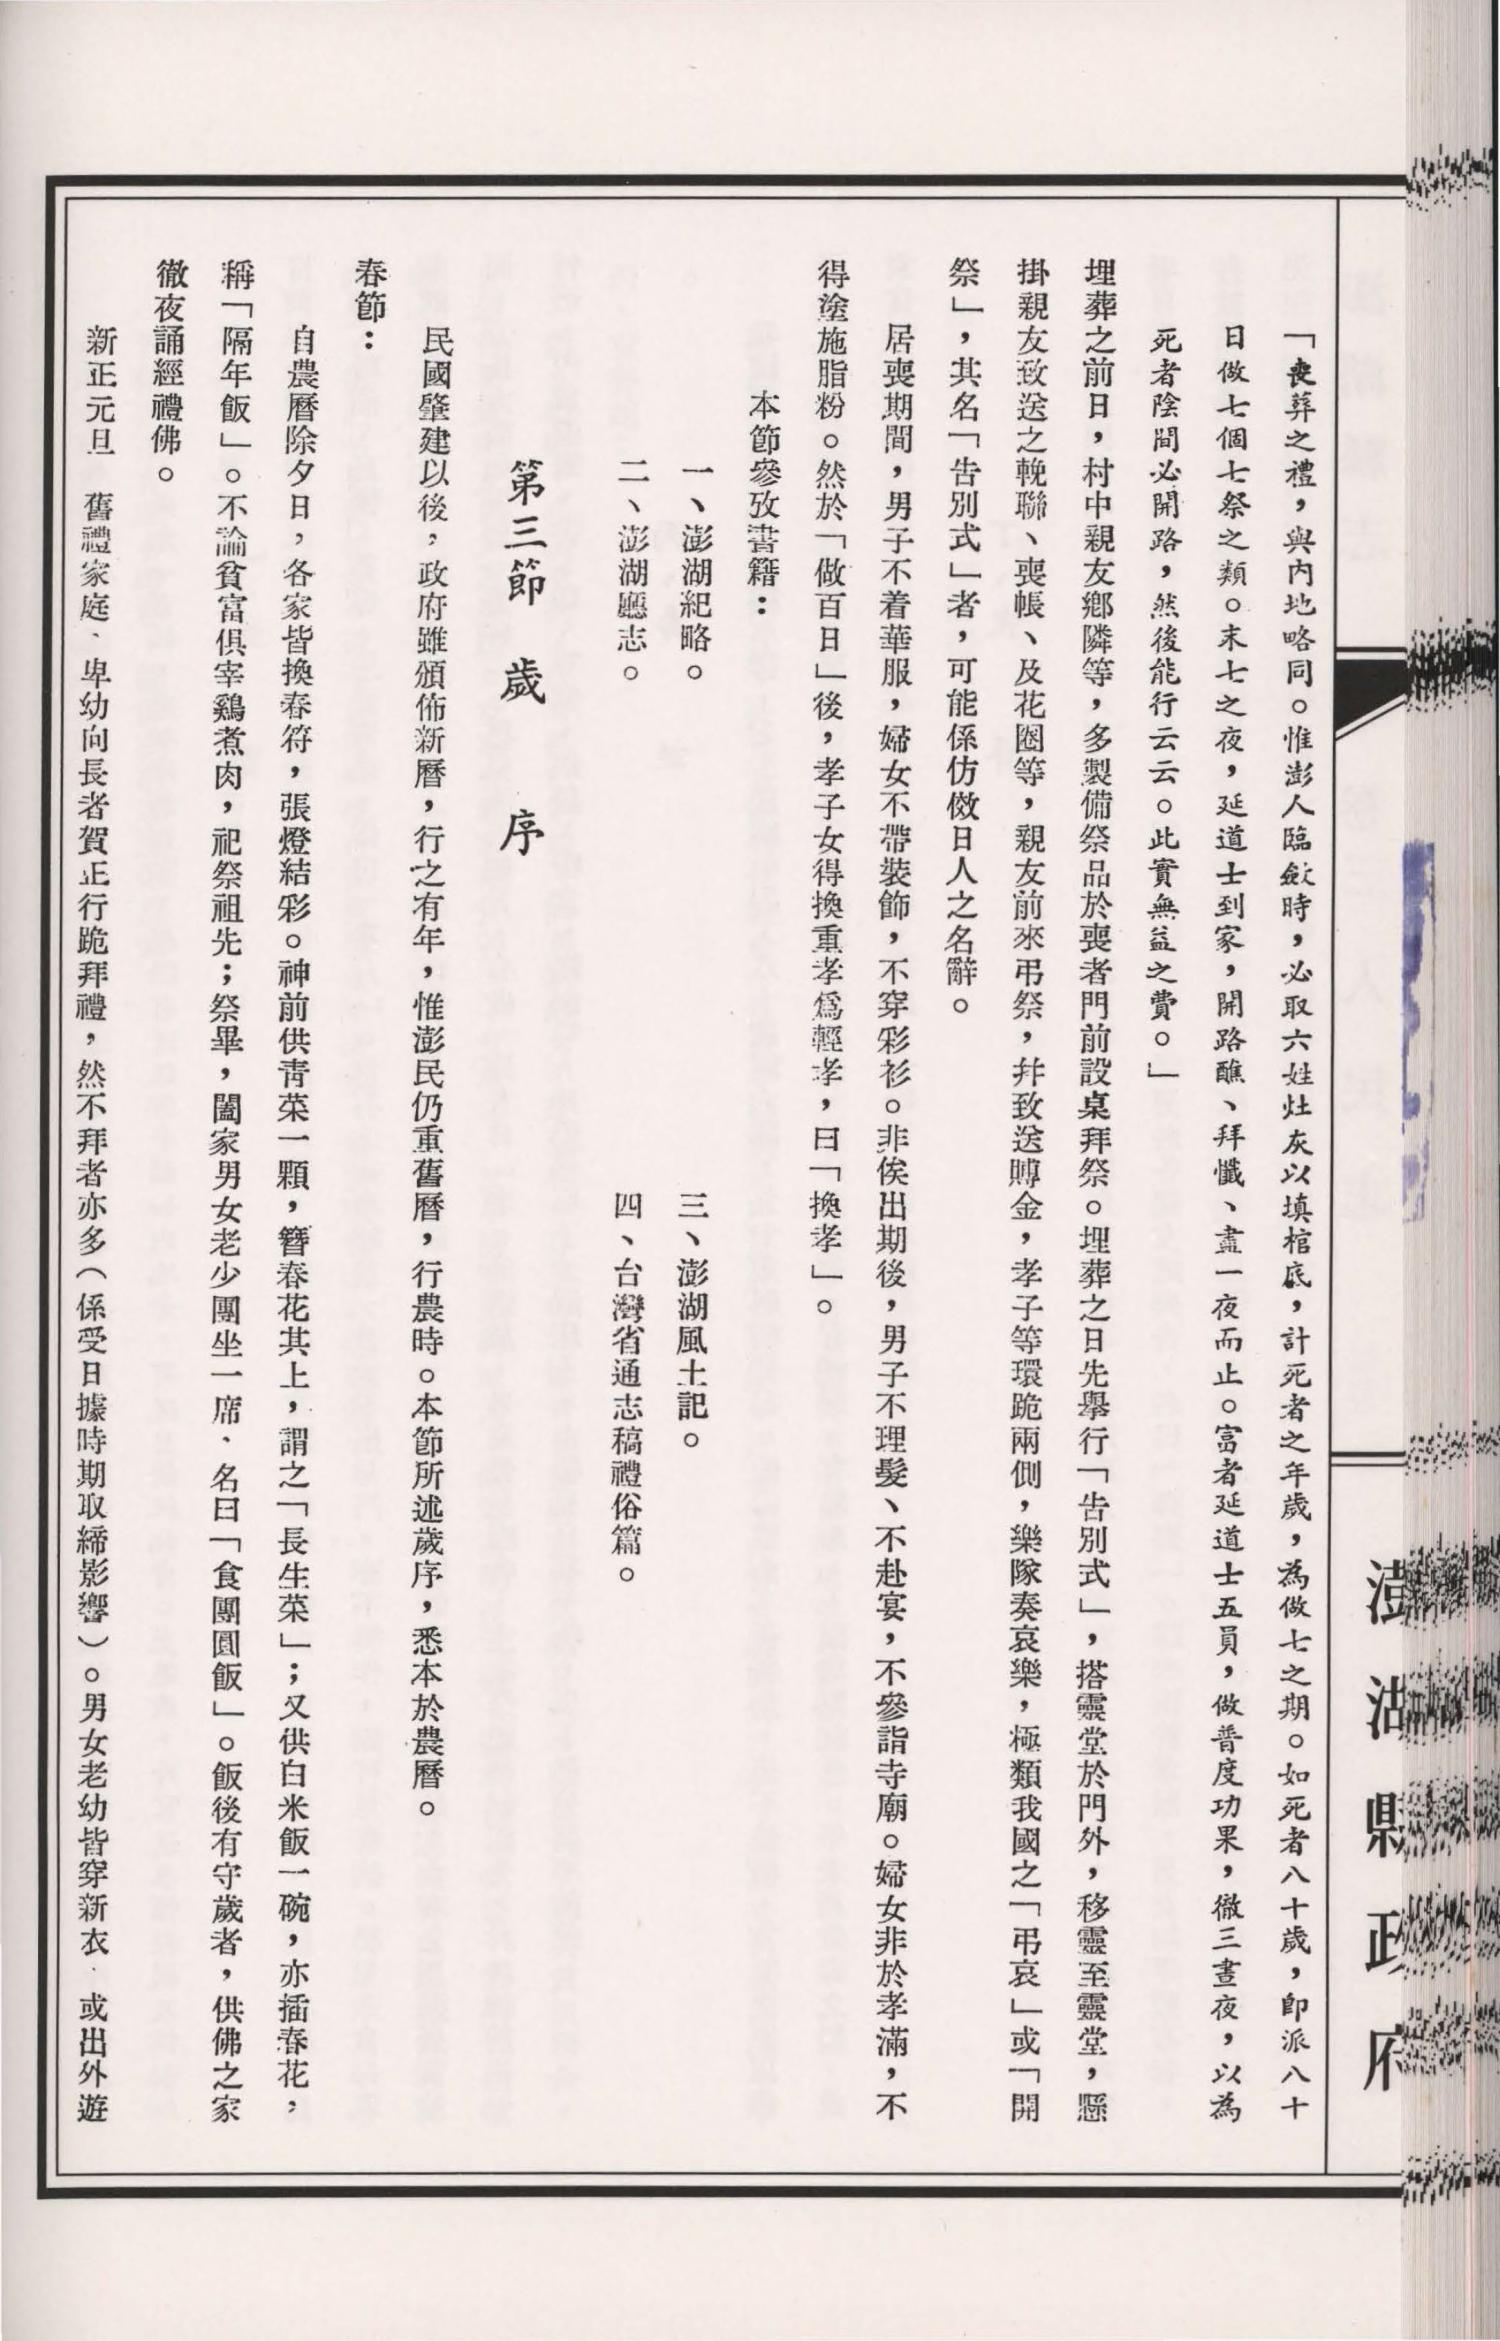 「喪葬之禮，與內地略同。惟澎人臨斂時，必取六姓灶灰以填棺底，計死者之年歲，為做七之期。如死者八十歲，即派八十
日做七個七祭之類。末七之夜，延道士到家，開路醮、拜懺、盡一夜而止。富者延道士五員，做普度功果，徹三晝夜，以為
死者陰間必開路，然後能行云云。此實無益之費。」
埋葬之前日，村中親友鄉隣等，多製備祭品於喪者門前設桌拜祭。埋葬之日先舉行「告別式」，搭靈堂於門外，移靈至靈堂，懸
掛親友致送之輓聯、喪帳、及花圈等，親友前來弔祭，幷致送賻金，孝子等環跪兩側，樂隊奏哀樂，極類我國之「弔哀」或「開
祭」，其名「告別式」者，可能係仿傚日人之名辭。
居喪期間，男子不着華服，婦女不帶裝飾，不穿彩衫。非俟出期後，男子不理髮、不赴宴，不參詣寺廟。婦女非於孝滿，不
得塗施脂粉。然於「做百日」後，孝子女得換重孝爲輕孝，曰「換孝」。
本節參攷書籍：
一、澎湖紀略。　三、澎湖風土記。
二、澎湖廳志。　四、台灣省通志稿禮俗篇。
第三節　歲　序
民國肇建以後，政府雖頒佈新曆，行之有年，惟澎民仍重舊曆，行農時。本節所述歲序，悉本於農曆。
春節：
自農曆除夕日，各家皆換春符，張燈結彩。神前供青菜一顆，簪春花其上，謂之「長生菜」；又供白米飯一碗，亦插春花，
稱「隔年飯」。不論貧富俱宰鷄煮肉，祀祭祖先；祭畢，闔家男女老少團坐一席、名曰「食團圓飯」。飯後有守歲者，供佛之家
徹夜誦經禮佛。
新正元旦　舊禮家庭、卑幼向長者賀正行跪拜禮，然不拜者亦多（係受日據時期取締影響）。男女老幼皆穿新衣、或出外遊
澎湖縣政府